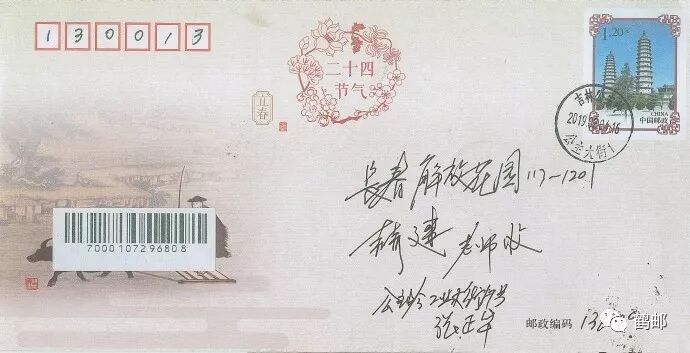 130013
二十四
节气
立春
1.20元
CHINA
中国邮政
吉林公
2019
16
公主大街1
长春解放花园117-1201
老师收
7000107296808
公主岭
张正午
邮政编码
鹤邮